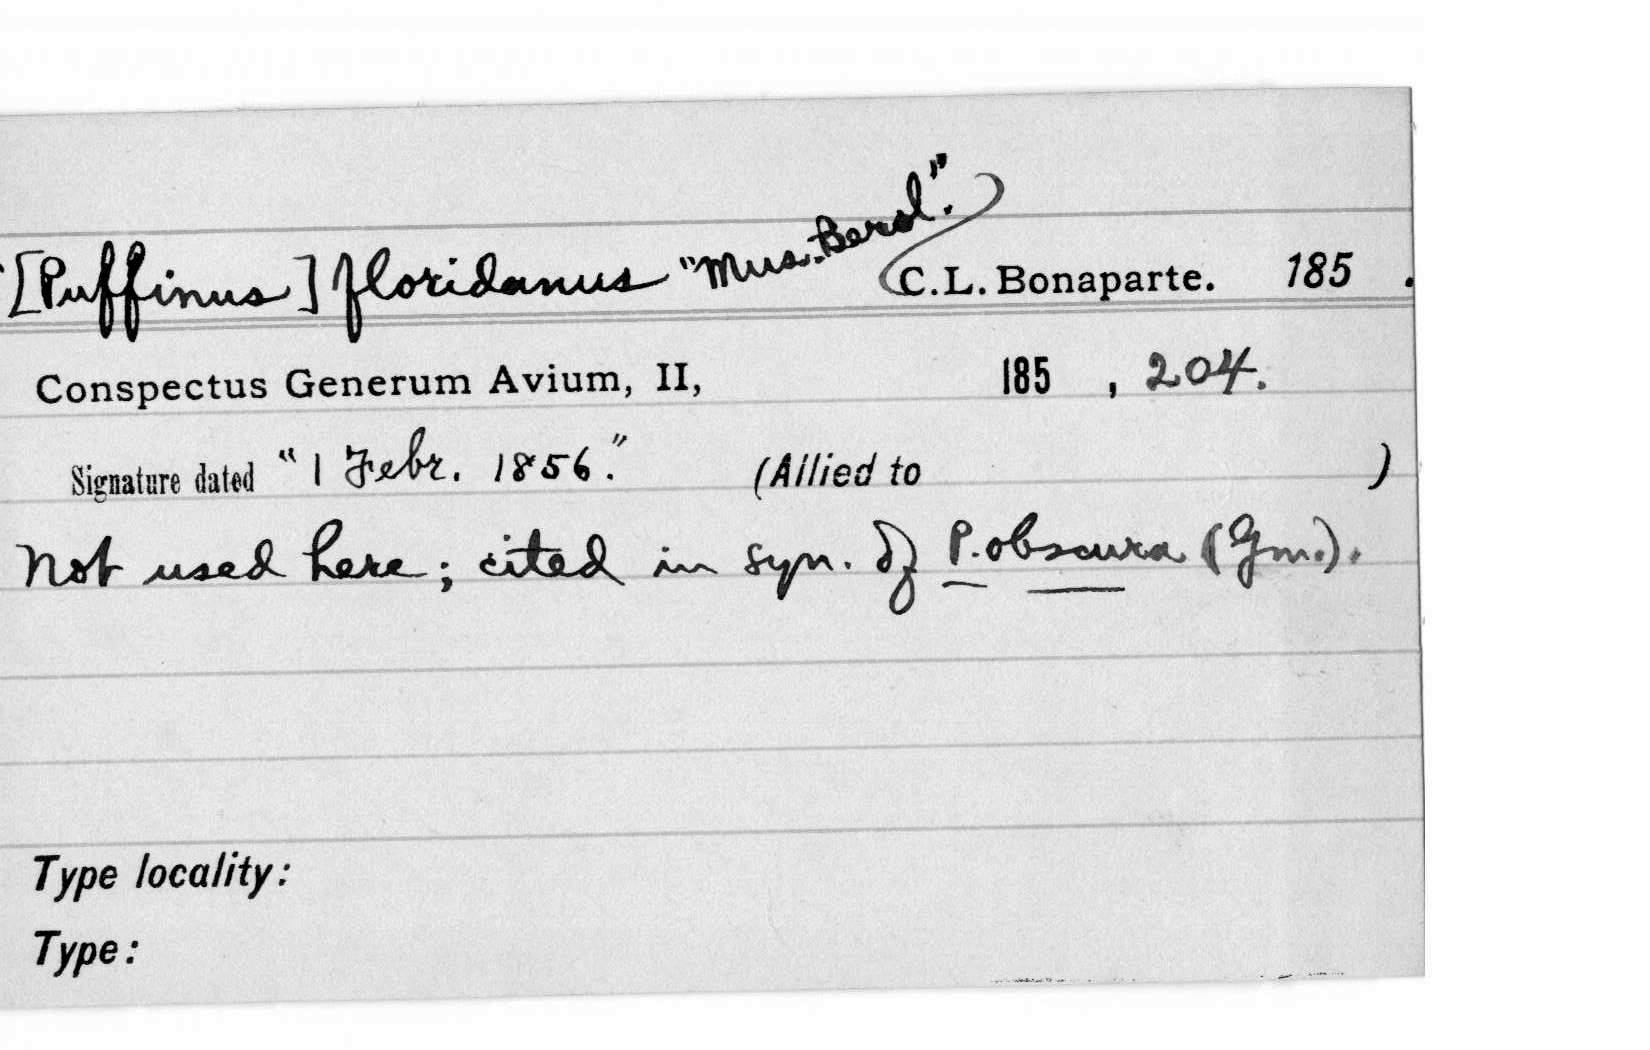 "[Puffinus] floridanus "Mus. Berol." C.L. Bonaparte. 185 .
Conspectus Generum Avium, II, 185 , 204.
Signature dated "1 Febr. 1856." (Allied to )
Not used here; cited in syn. of P. obscura (Gm.).
Type locality:
Type: